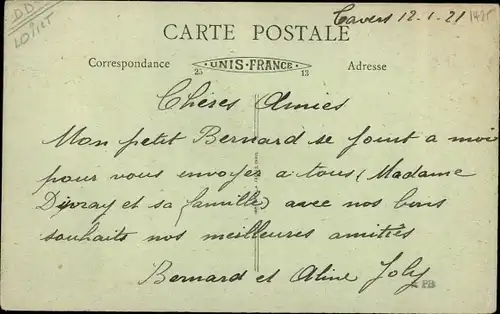 DD
LOIRET
Tavers 12.1.21
CARTE POSTALE
Correspondance
UNIS-FRANCE
25 13
Adresse
Chères Amies
Mon petit Bernard se joint a moi
pour vous envoyer a tous (Madame
et sa famille) avec nos bons
souhaits nos meilleures amitiés
Bernard et Aline Joly
PB